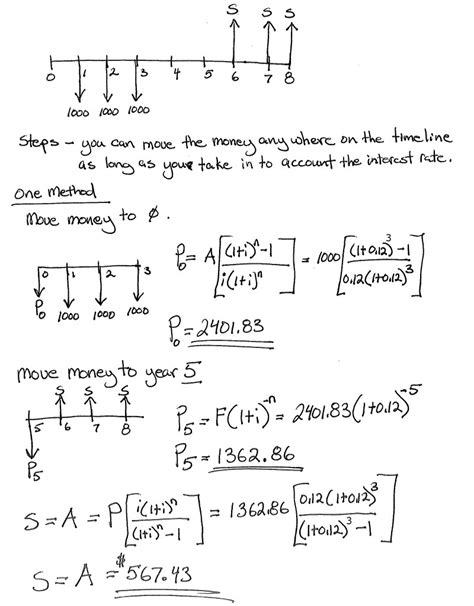 S S S
0 1 2 3 4 5 6 7 8
1000 1000 1000
Steps - you can move the money anywhere on the timeline
as long as you take in to account the interest rate.
One Method
Move money to 0.
0 1 2 3
P₀ 1000 1000 1000
P₀ = A[((1+i)ⁿ-1)/(i(1+i)ⁿ)] = 1000[((1+0.12)³-1)/(0.12(1+0.12)³)]
P₀ = 2401.83
Move money to year 5
S S S
5 6 7 8
P₅
P₅ = F(1+i)⁻ⁿ = 2401.83(1+0.12)⁻⁵
P₅ = 1362.86
S = A = P[(i(1+i)ⁿ)/((1+i)ⁿ-1)] = 1362.86[(0.12(1+0.12)³)/((1+0.12)³-1)]
S = A = $567.43